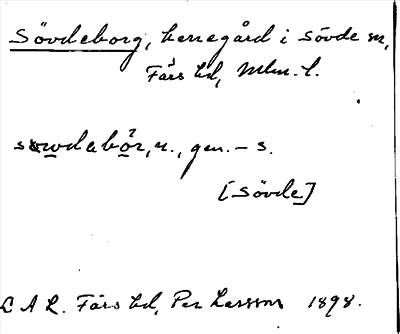 Sövdeborg, herregård i Sövde sn,
Färs hd, Mlm. l.
n., gen. – s.
[Sövde]
L A L. Färs hd, Per Larsson 1898.